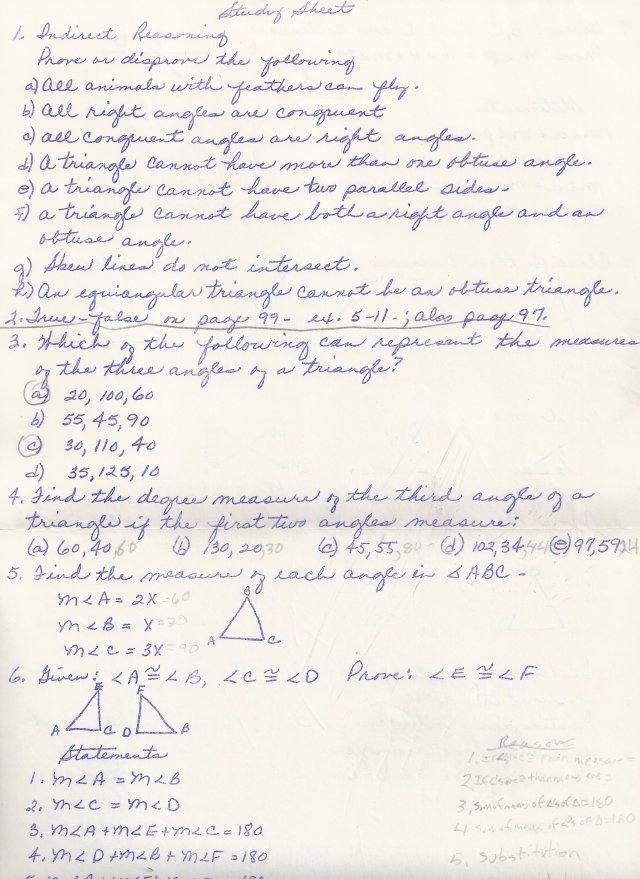 Study Sheet
1. Indirect Reasoning
Prove or disprove the following
a) All animals with feathers can fly.
b) All right angles are congruent
c) all congruent angles are right angles.
d) A triangle cannot have more than one obtuse angle.
e) a triangle cannot have two parallel sides.
f) a triangle cannot have both a right angle and an
obtuse angle.
g) Skew lines do not intersect.
h) An equiangular triangle cannot be an obtuse triangle.
2. True-false on page 99- ex. 5-11-; also page 97.
3. Which of the following can represent the measures
of the three angles of a triangle?
a) 20, 100, 60
b) 55, 45, 90
c) 30, 110, 40
d) 35, 125, 10
4. Find the degree measure of the third angle of a
triangle if the first two angles measure:
(a) 60, 40, (b) 130, 20, 30 (c) 45, 55, 80 (d) 102, 34, 44 (e) 97, 59, 24
5. Find the measure of each angle in △ABC -
m∠A = 2x =60
m∠B = x =30
m∠C = 3x =90
B
A C
6. Given: ∠A ≅ ∠B, ∠C ≅ ∠D Prove: ∠E ≅ ∠F
E F
A C D B
Statements Reasons
1. m∠A = m∠B 1. If ∠'s are ≅ their measure =
2. m∠C = m∠D 2. If ∠'s are ≅ are =
3. m∠A + m∠E + m∠C = 180 3. Sum of meas of ∠'s of △ = 180
4. m∠D + m∠B + m∠F = 180 4. Sum of meas of ∠'s of △ = 180
5. Substitution